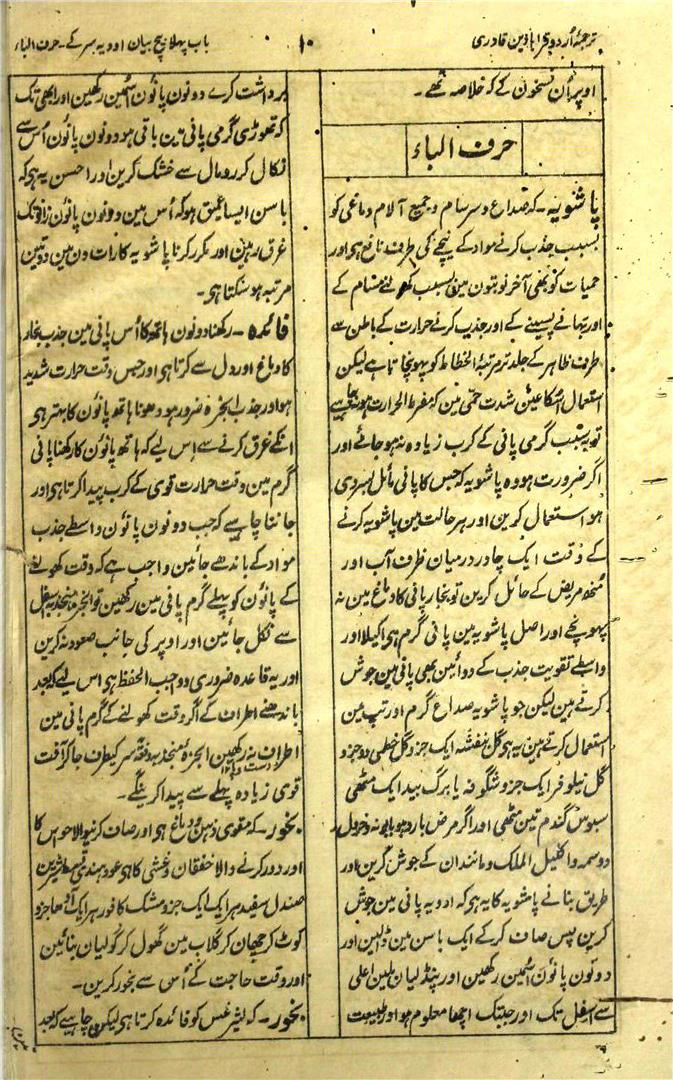 ترجمۂ اردو قرابادین قادری
۱۰
باب پہلا بیچ بیان ادویہ سر کے۔ حرف الباء
اوپر اُن نسخون کے کہ خلاصہ تھے۔
حرف الباء
پاشویہ۔ کہ صداع و سرسام و جمیع آلام دماغی کو
بسبب جذب کرنے مواد کے نیچے کی طرف نافع ہی اور
حمیات کو بھی آخر نوبتون مین بسبب کھولنے مسام کے
اور بہانے پسینے کے اور جذب کرنے حرارت کے باطن سے
طرف ظاہر کے جلد تر مرتبۂ انحطاط کو پہونچاتا ہے لیکن
استعمال اسکا عین شدت حمی مین کہ مفرط الحرارت ہو نچاہیے
تو بسبب گرمی پانی کے کرب زیادہ نہ ہو جائے اور
اگر ضرورت ہو وہ پاشویہ کہ جس کا پانی مائل بسردی
ہو استعمال کرین اور ہر حالت مین پاشویہ کرنے
کے وقت ایک چادر درمیان ظرف آب اور
منھ مریض کے حائل کرین تو بخار پانی کا دماغ مین نہ
پہونچے اور اصل پاشویہ مین پانی گرم ہی اکیلا اور
واسطے تقویت جذب کے دوائین بھی پانی مین جوش
کرتے ہین لیکن جو پاشویہ صداع گرم اور تپ مین
استعمال کرتے ہین یہ ہی گل بنفشہ ایک جزو گل خطمی دو جزو
گل نیلوفر ایک جزو شگوفہ یا برگ بید ایک مٹھی
سبوس گندم تین مٹھی اور اگر مرض بارد ہو بابونہ و خردل
و وسمہ و اکلیل الملک و مانند ان کے جوش کرین اور
طریق بنانے پاشویہ کا یہ ہی کہ ادویہ پانی مین جوش
کرین پس صاف کرکے ایک باسن مین ڈالین اور
دونون پانون اسمین رکھین اور پنڈلیان ملین اعلی
سے اسفل تک اور جبتک اچھا معلوم ہو اور طبیعت
برداشت کرے دونون پانون اسمین رکھین اور ابھی تک
کہ تھوڑی گرمی پانی مین باقی ہو دونون پانون اُس سے
نکال کر رومال سے خشک کرین اور احسن یہ ہی کہ
باسن ایسا عمیق ہو کہ اُس مین دونون پانون زانو تک
غرق رہین اور مکرر کرنا پاشویہ کا رات دن مین دو تین
مرتبہ ہو سکتا ہی۔
فائدہ۔ رکھنا دونون ہاتھ کا اُس پانی مین جذب بخار
کا دماغ اور دل سے کرتا ہی اور جس وقت حرارت شدید
ہو اور جذب ابخرہ ضرور ہو دھونا ہاتھ پانون کا بہتر ہی
انکے غرق کرنے سے اس لیے کہ ہاتھ پانون کا رکھنا پانی
گرم مین وقت حرارت قوی کے کرب پیدا کرتا ہی اور
جاننا چاہیے کہ جب دونون پانون واسطے جذب
مواد کے باندھے جائین واجب ہے کہ وقت کھولنے
کے پانون کو پہلے گرم پانی مین رکھین تو ابخرہ منجذبہ اسفل
سے نکل جائین اور اوپر کی جانب صعود نہ کرین
اور یہ قاعدہ ضروری و واجب الحفظ ہی اس لیے کہ بعد
باندھنے اطراف کے اگر وقت کھولنے کے گرم پانی مین
اطراف نہ رکھین ابخرۂ منجذبہ دفعۃً سر کیطرف جا کر آفت
قوی زیادہ پہلے سے پیدا کرینگے۔
بخور۔ کہ مقوی ذہن و دماغ ہی اور صاف کرنیوالا حواس کا
اور دور کرنے والا خفقان و غشی کا ہی عود ہندی قسط شیرین
صندل سفید ہر ایک ایک جزو مشک کافور ہر ایک آدھا جزو
کوٹ کر چھان کر گلاب مین گھول کر گولیان بنائین
اور وقت حاجت کے اُس سے بخور کرین۔
بخور۔ کہ لیثرغس کو فائدہ کرتا ہی لیکن چاہیے کہ بعد